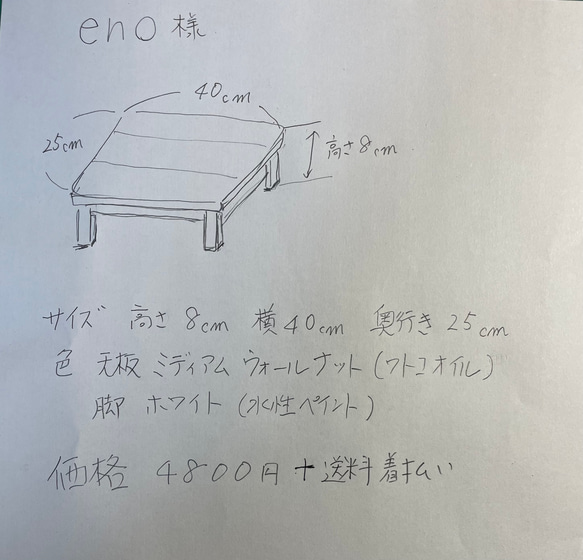 eno様
40cm
25cm
高さ8cm
サイズ 高さ 8cm 横40cm 奥行き 25cm
色 天板 ミディアム ウォールナット(ワトコオイル)
脚 ホワイト(水性ペイント)
価格 4800円+送料着払い